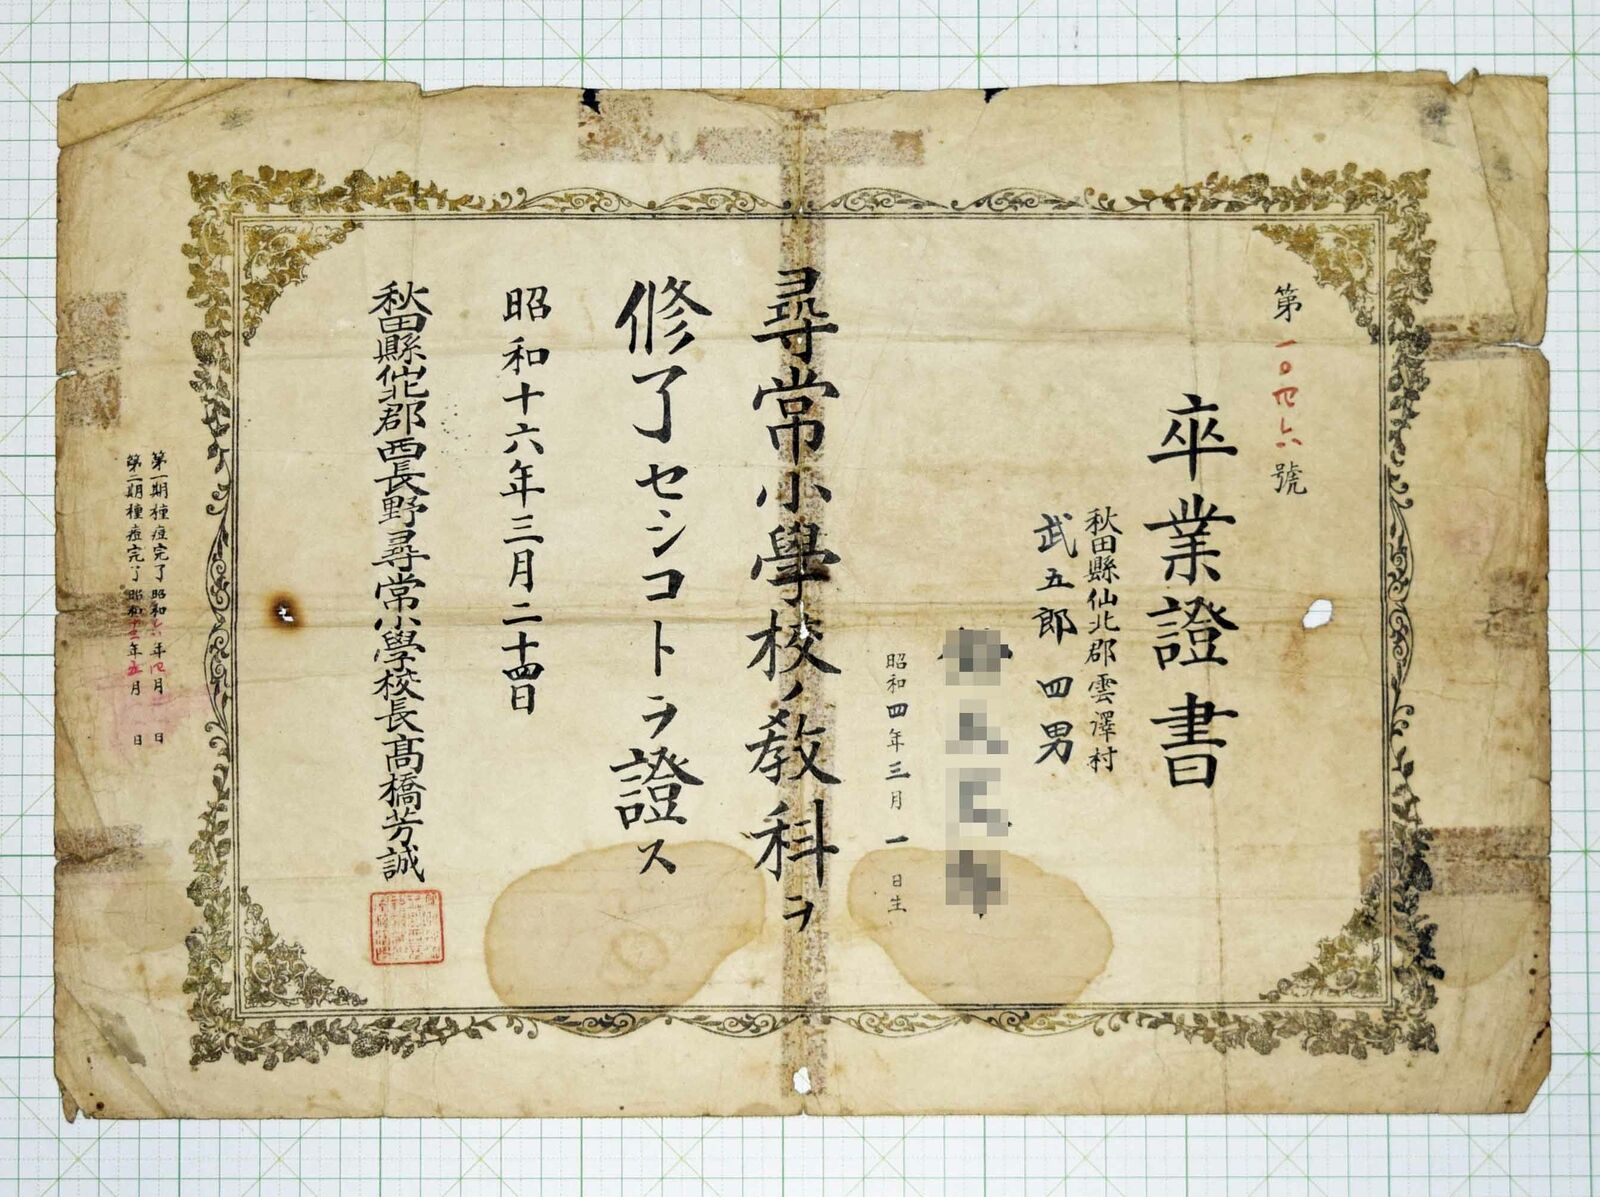 第一〇四六號
卒業證書
秋田縣仙北郡雲澤村
武五郎 四男
昭和四年三月一日生
尋常小學校ノ教科ヲ
修了セシコトヲ證ス
昭和十六年三月二十四日
秋田縣仙北郡西長野尋常小學校長髙橋芳誠
第一期種痘完了 昭和六年四月 日
第二期種痘完了 昭和十三年五月 日